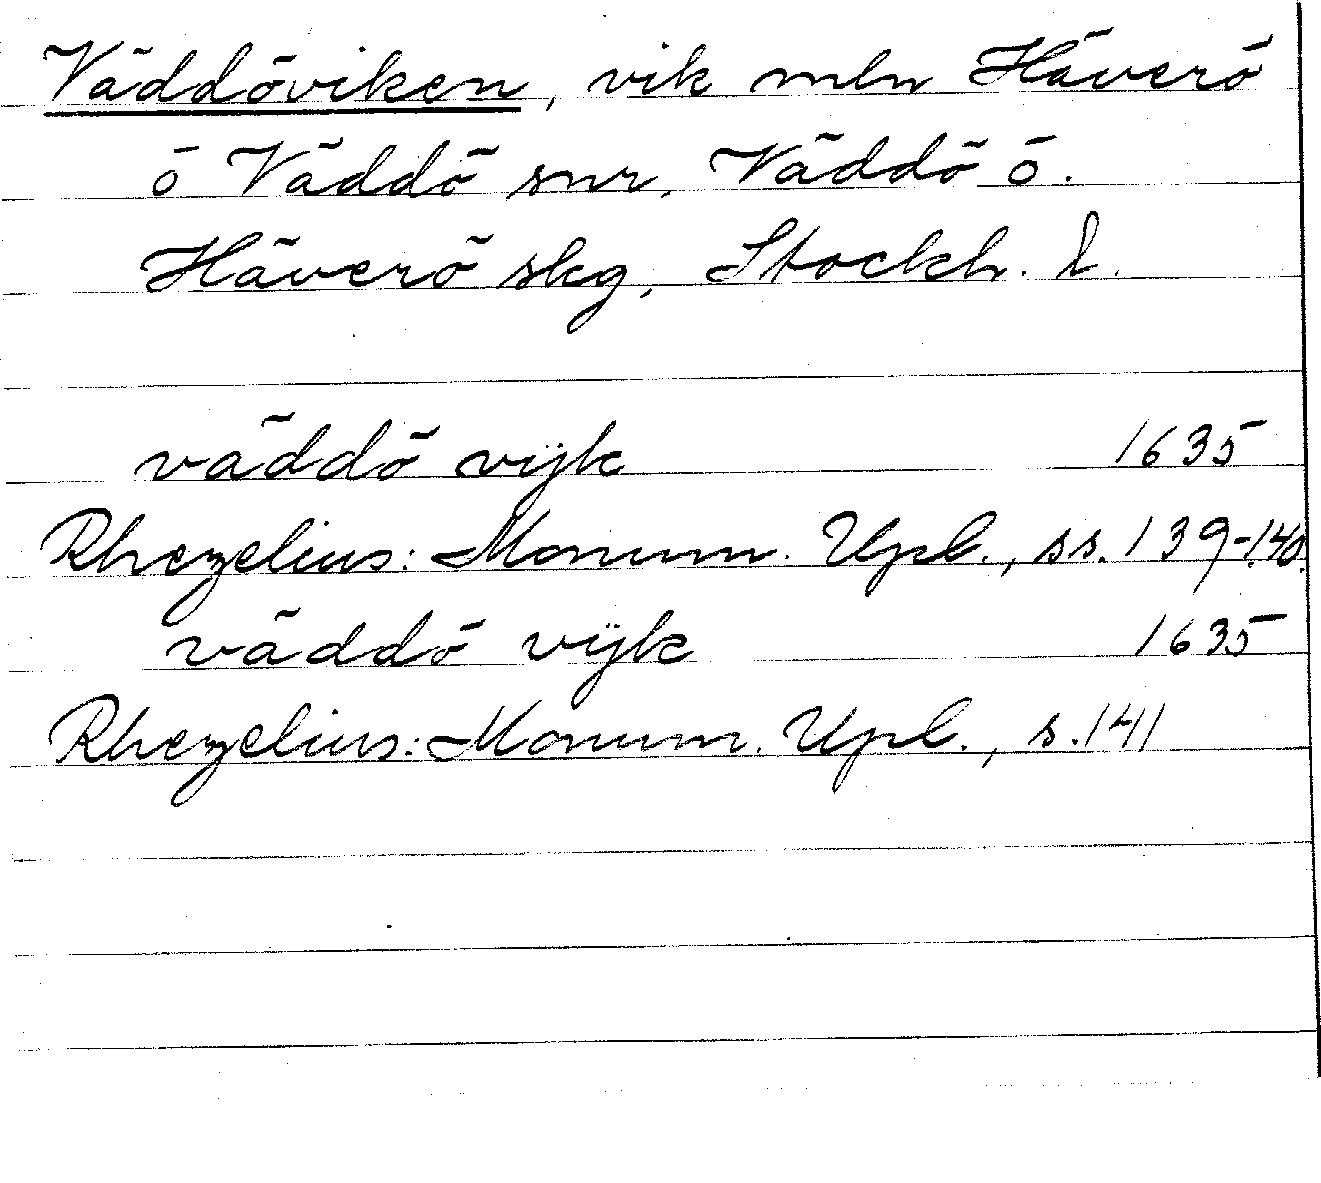 Väddöviken, vik mln Häverö
o Väddö snr, Väddö o.
Häverö skg, Stockh. l.
väddö vijk 1635
Rhezelius: Monum. Upl., ss. 139-140.
väddö vijk 1635
Rhezelius: Monum. Upl., s. 141